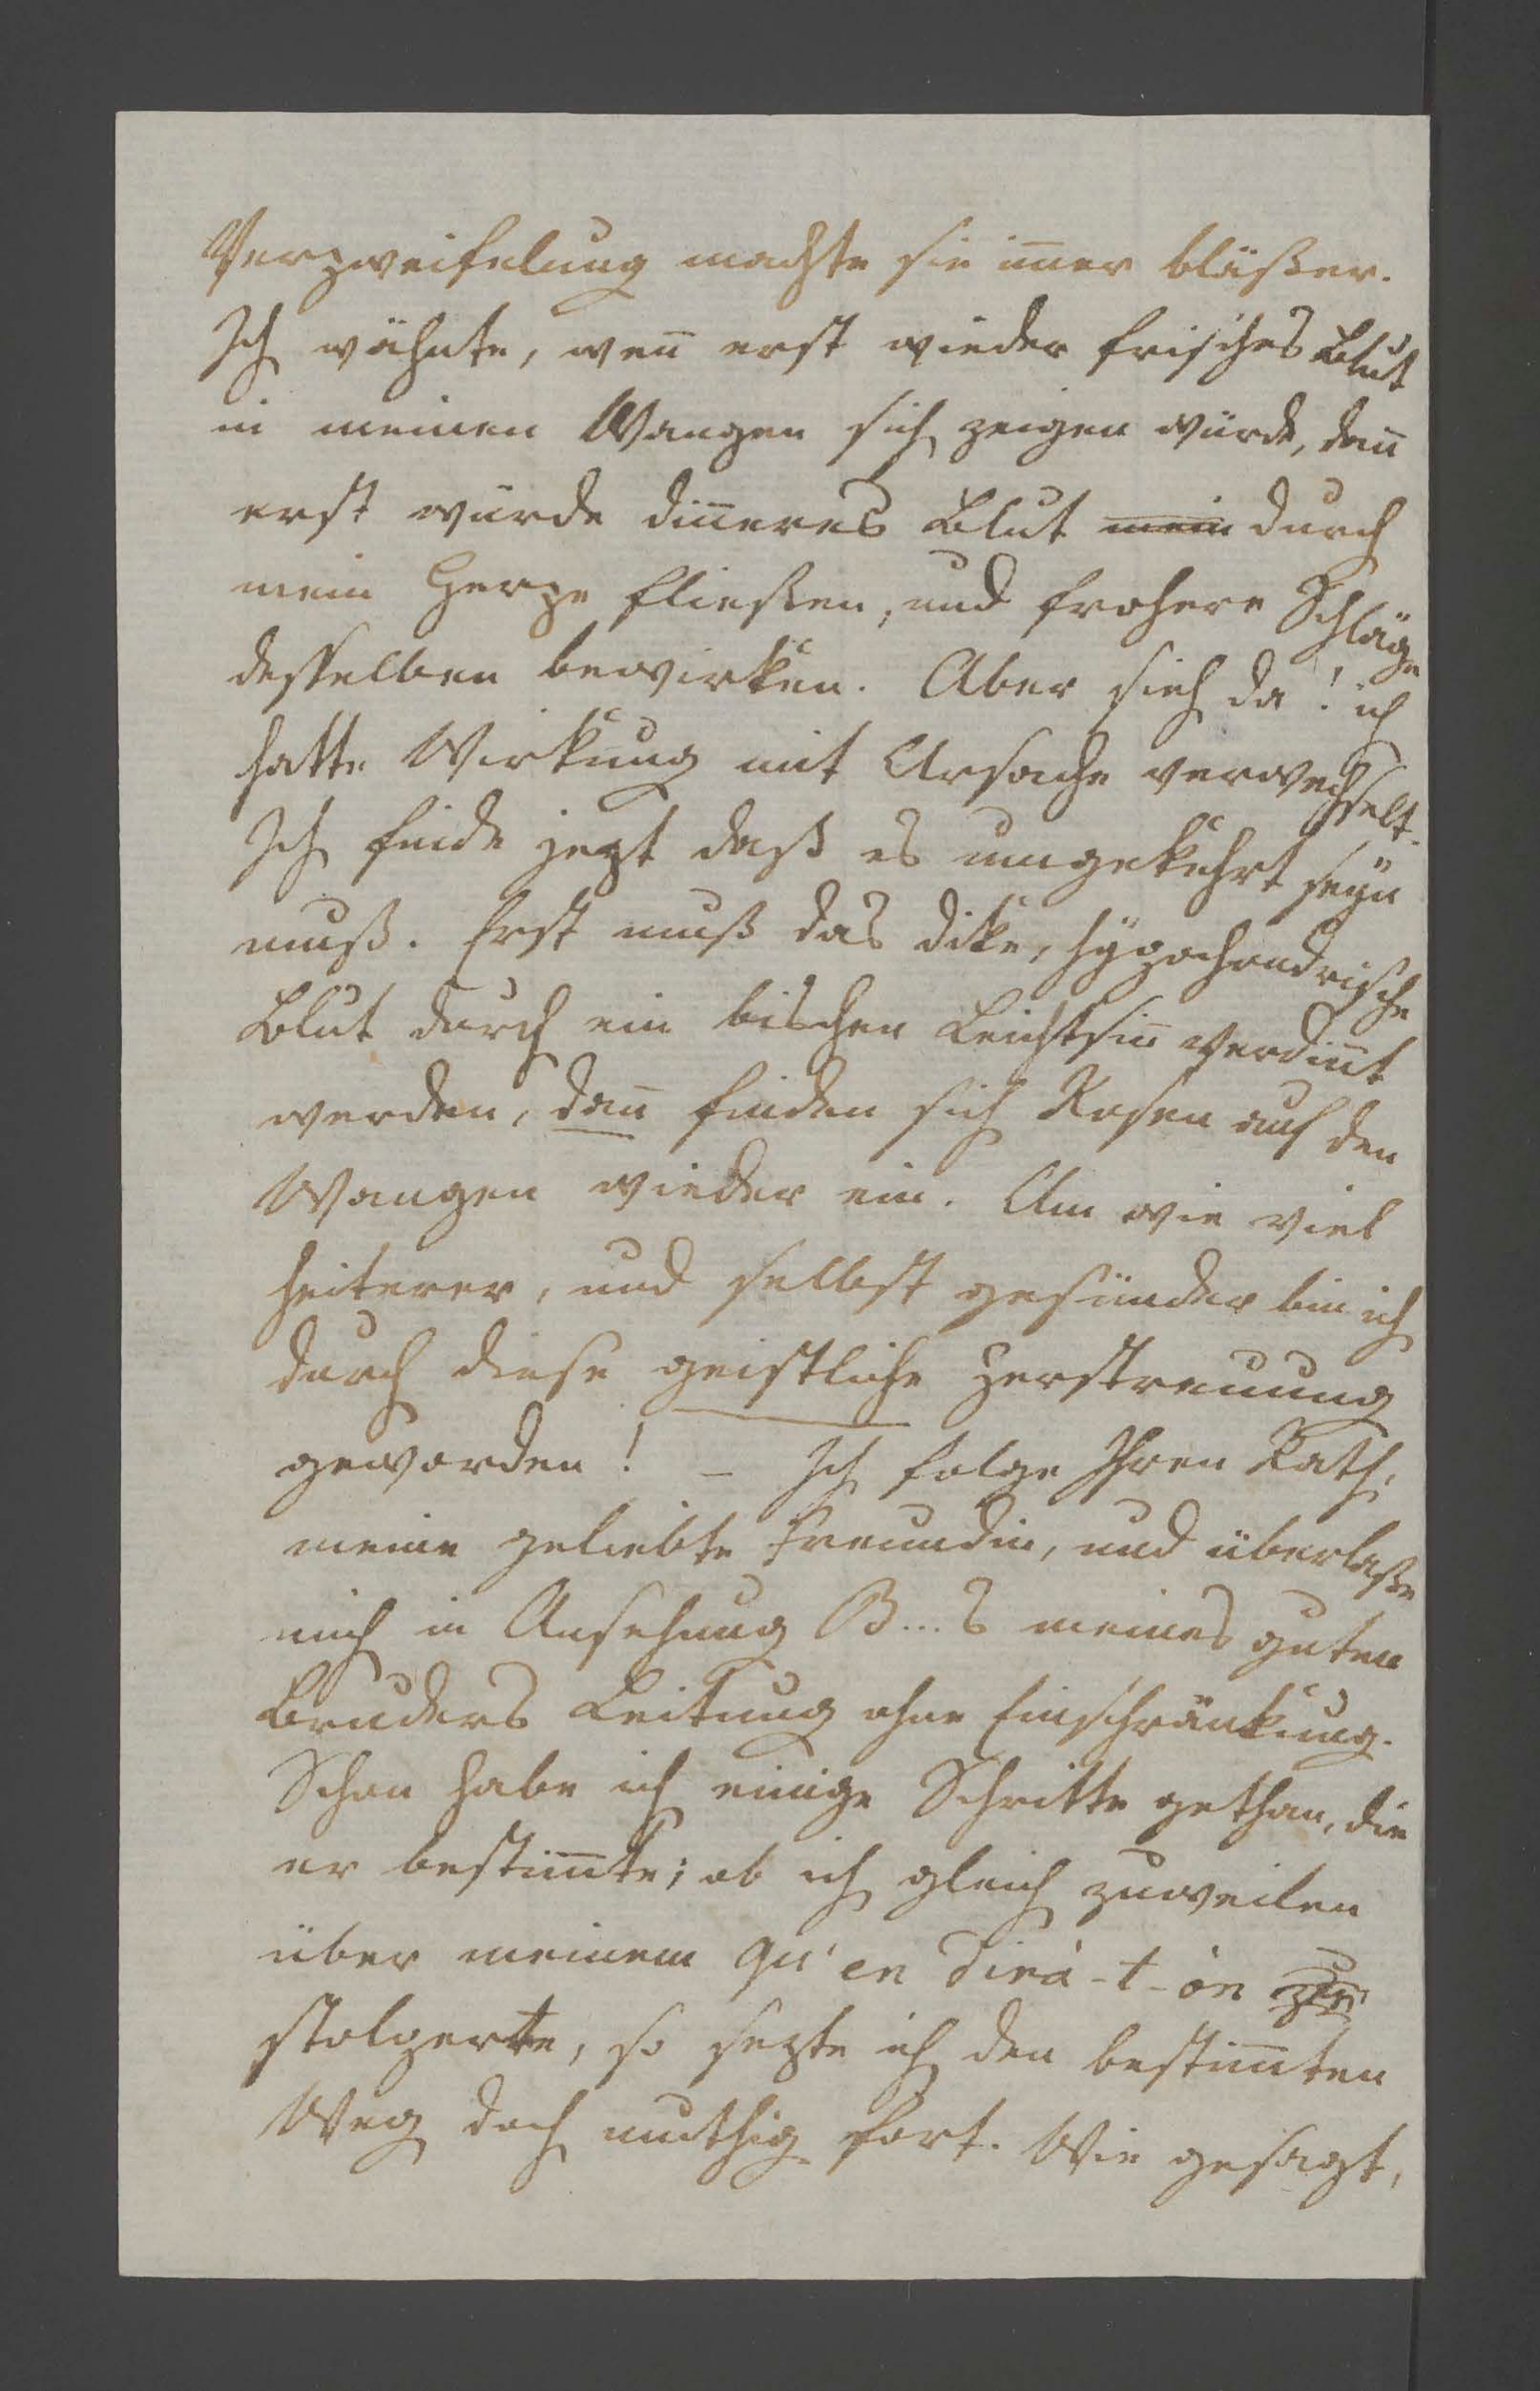 Verzweifelung machte sie im̄er bläßer.
Ich wähnte, wen̄ erst wieder frisches Blut
in meinen Wangen sich zeigen würde, dan̄
erst würde din̄eres Blut mein durch
mein Herze fließen, und frohere Schläge
desselben bewirken. Aber sieh da! ich
hatte Wirkung mit Ursache verwechselt.
Ich finde jezt daß es umgekehrt seÿn
muß. Erst muß das dike, hÿpochondrische
Blut durch ein bischen Leichtsin̄ verdin̄t
werden, dan̄ finden sich Rosen auf den
Wangen wieder ein. Um wie viel
heiterer, und selbst gesünder bin ich
durch diese geistliche Zerstreuung
geworden! – Ich folge Ihren Rath,
meine geliebte Freundin, und überlaße
mich in Ansehung B...s meines guten
Bruders Leitung ohne Einschränkung.
Schon habe ich einige Schritte gethan, die
er bestim̄te; ob ich gleich zuweilen
über meinem qu'en dira-t-on
stolperte, so sezte ich den bestim̄ten
Weg doch muthig fort. Wie gesagt,